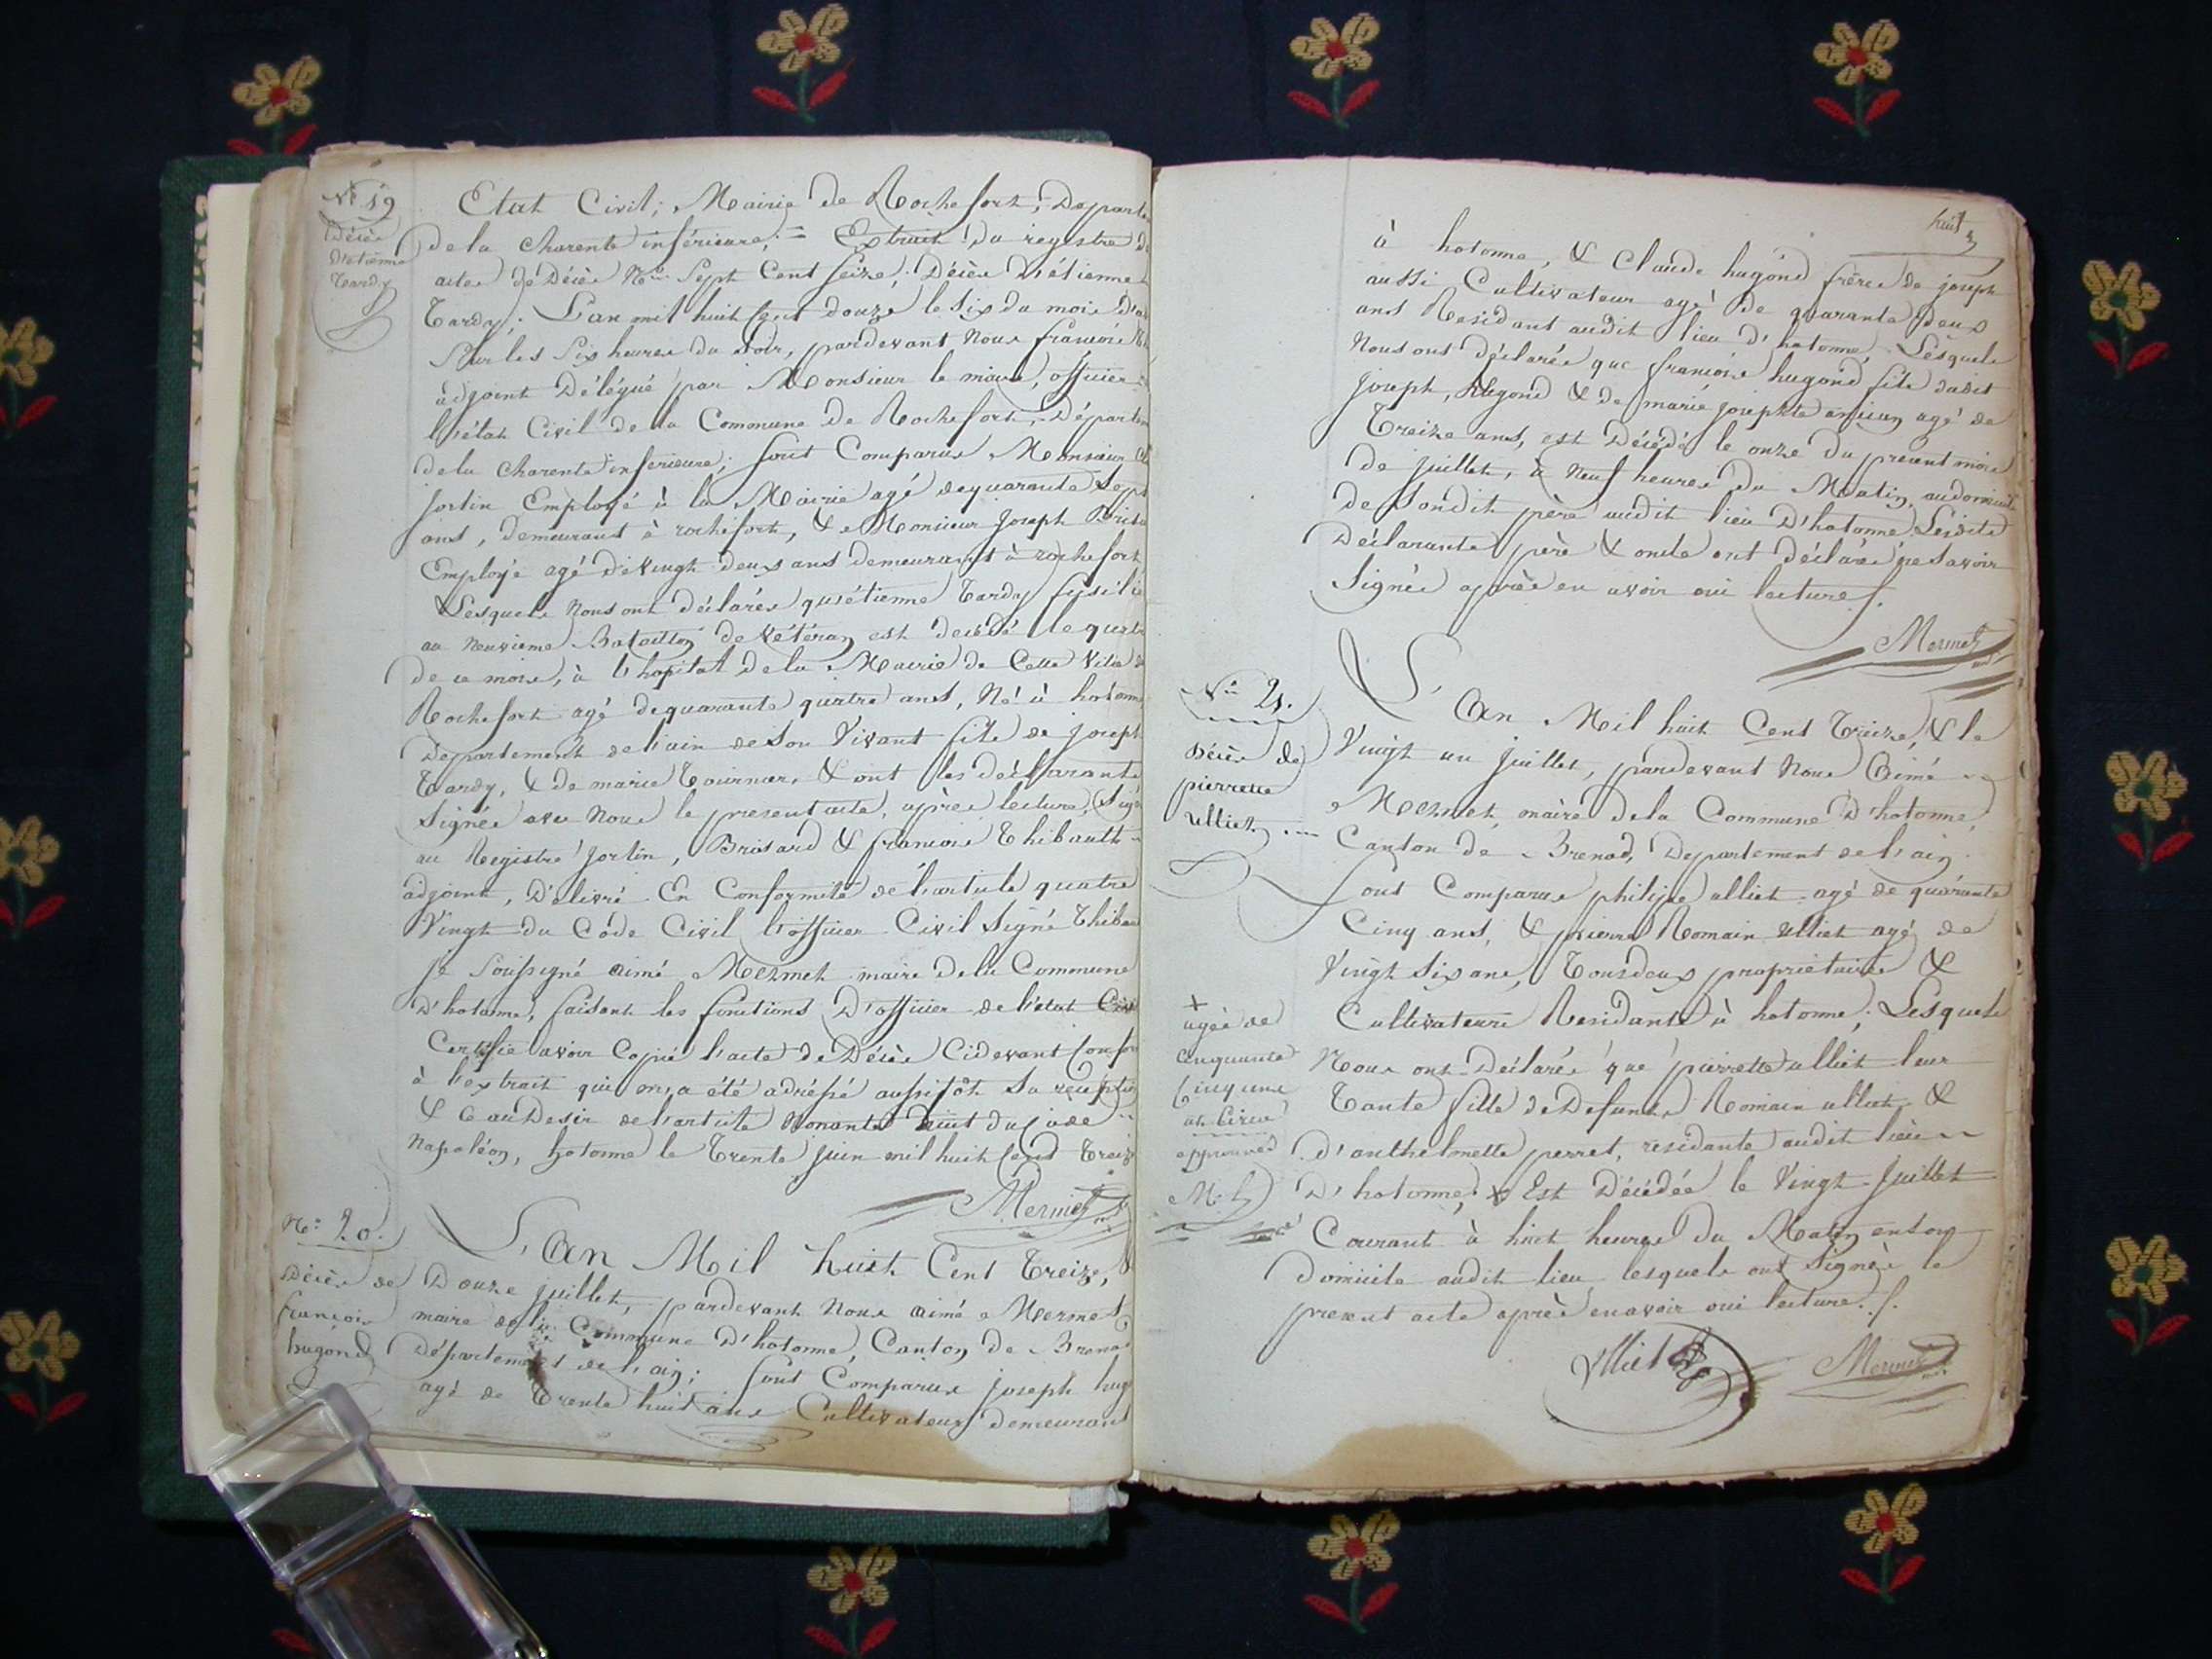 N° 19
Décès
D'étienne
Tardy
Etat Civil; Mairie de Rochefort; Departem
de la Charente inférieure; = Extrait du registre de
actes de Décès N° Sept Cent Seize; Décès D'étienne
Tardy; L'an mil huit Cent douze le Six du mois d'
Sur les Six heures du Soir, pardevant Nous françois
adjoint Délégué par Monsieur le maire, officier
l'état Civil de la Commune de Rochefort, Départem
de la Charente inferieure; Sont Comparus Monsieur
jortin Employé à la Mairie agé de quarante Sept
ans, demeurant à rochefort, & Monsieur joseph Brisa
Employé agé de Vingt deux ans demeurant à rochefort
Lesquels Nous ont déclarés qu'étienne Tardy fusilie
au Neuvieme Bataillon de Vétéran est decédé le quatr
de ce mois, à l'hopital de la Marine de Cette Ville de
Rochefort agé de quarante quatre ans, Né à hotonne
Departement de l'ain de Son Vivant fils de joseph
Tardy, & de marie Tournier, & ont les déclarants
Signés avec Nous le present acte, après lecture, Sig
au Registre jortin, Brisard & françois Thibault
adjoint, Délivré En Conformité de l'article quatre
Vingt du Code Civil l'officier Civil Signé Thibau
je Soussigné aimé Mermet maire de la Commune
D'hotonne, faisant les fonctions D'officier de l'état Civi
Certifie avoir Copié l'acte de Décès Cidevant Confor
à l'extrait qui m'a été adréssé aussitôt Sa reception
& ce au Desir de l'article Nonante huit du Code
Napoléon, hotonne le Trente juin mil huit Cent Treiz
Mermet
N° 20.
Décès de
françois
hugond
L'An Mil huit Cent Treize, &
Douze juillet, pardevant Nous aimé Mermet
maire de la Commune D'hotonne, Canton de Brenod
Département de l'ain; Sont Comparus joseph hug
agé de Trente huit ans Cultivateur demeurant
huit
à hotonne, & Claude hugond frère de joseph
aussi Cultivateur agé de quarante deux
ans Residant audit lieu d'hotonne, Lesquels
Nous ont déclarés que françois hugond fils dudit
joseph, hugond & de marie josephte ancian agé de
Treize ans, est Décédé le onze du present mois
de juillet, à Neuf heures du Matin, au domicile
de Sondit père audit lieu D'hotonne Lesdits
Déclarants père & oncle ont déclarés ne Savoir
Signer après en avoir oui lecture.
Mermet
N° 21.
Décès de
pierrette
ulliet
L'An Mil huit Cent Treize, & le
Vingt un juillet, pardevant Nous Aimé
Mermet, maire de la Commune D'hotonne,
Canton de Brenod, Departement de l'ain.
Sont Comparus philipe ulliet agé de quarante
Cinq ans, & pierre Romain ulliet agé de
Vingt Six ans, Tous deux propriétaires &
Cultivateurs Residants à hotonne; Lesquels
Nous ont Déclarés que pierrette ulliet leur
Tante fille de Defunts Romain ulliet &
d'anthelmette perret, residante audit lieu
D'hotonne; x Est Décédée le Vingt Juillet
Courant à huit heures du Matin en son
domicile audit lieu lesquels ont Signés le
present acte après en avoir oui lecture.
x
agée de
Cinquante
Cinq ans
ou Circa
approuvé
M.
ulliet
Mermet